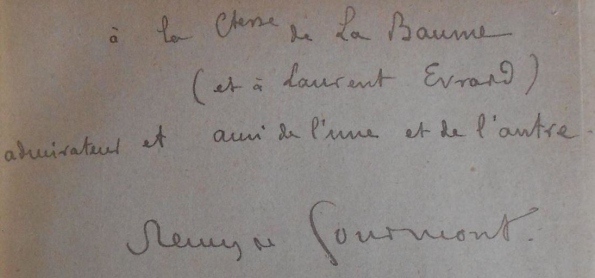 à la Ctesse de La Baume
(et à Laurent Evrard)
admirateur et ami de l'une et de l'autre.
Remy de Gourmont.